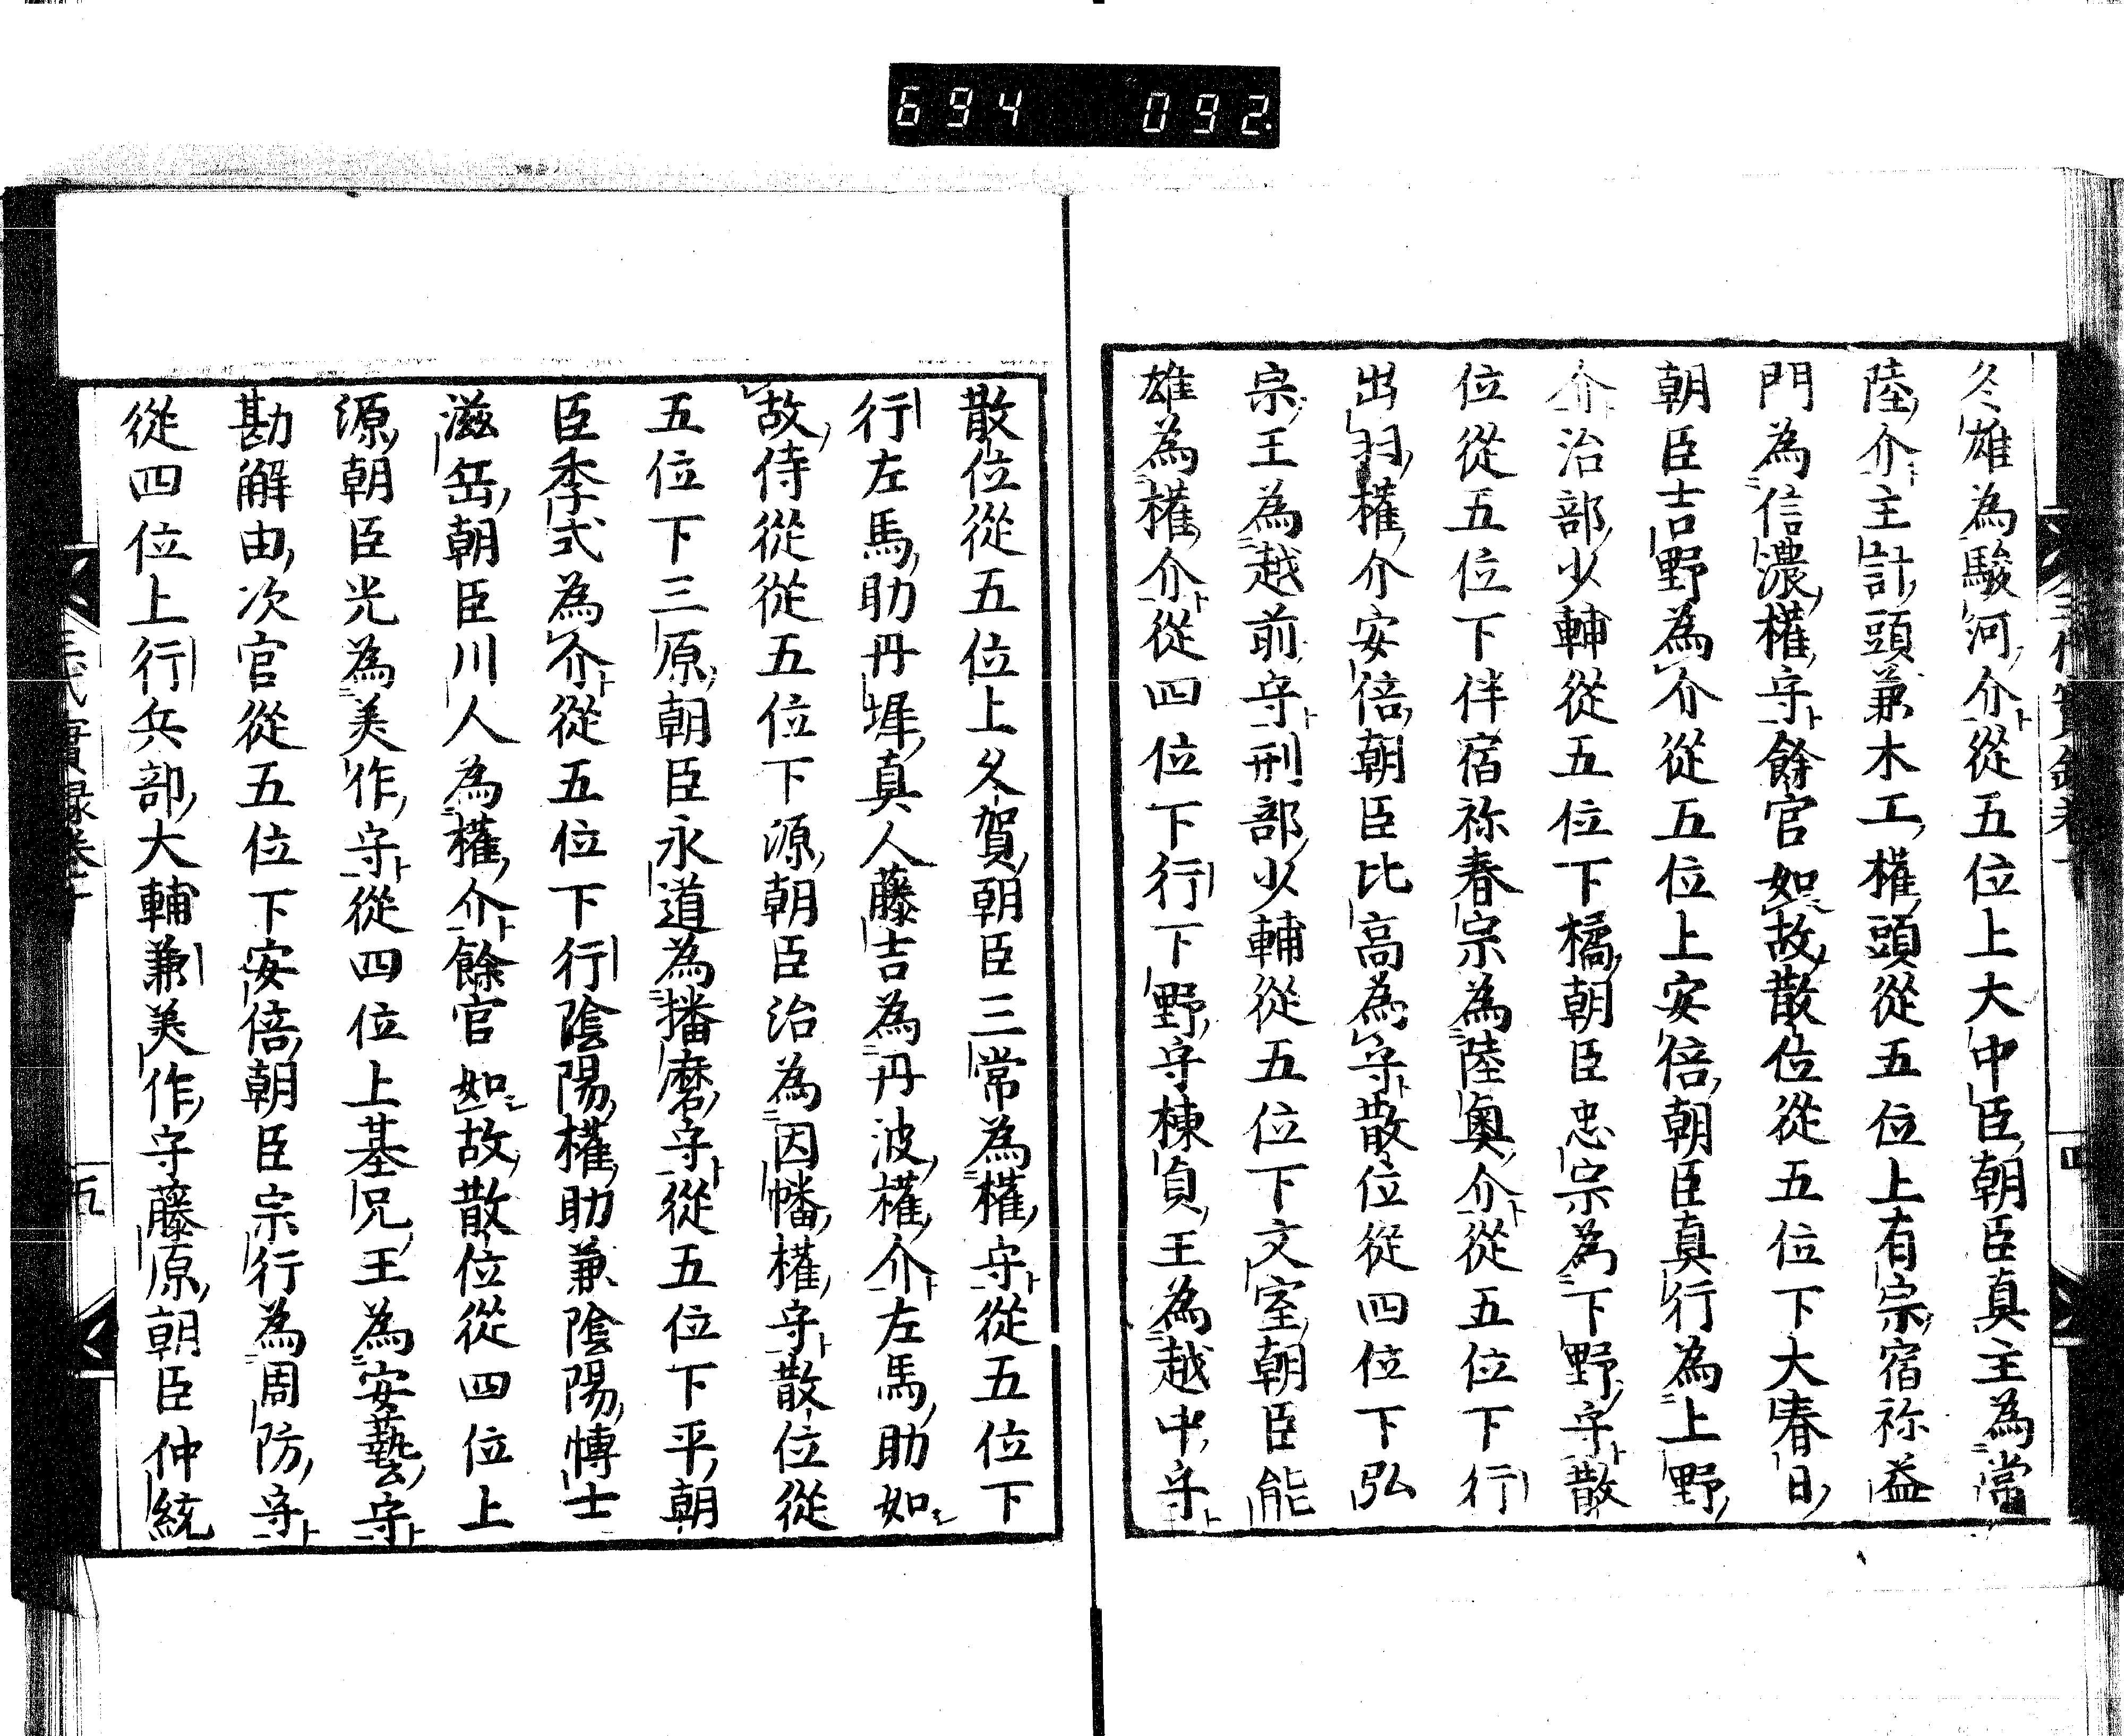 694 092
冬雄為駿河介從五位上大中臣朝臣真主為常
陸介主計頭兼木工權頭從五位上有宗宿祢益
門為信濃權守餘官如故散位從五位下大春日
朝臣吉野為介從五位上安倍朝臣真行為上野
介治部少輔從五位下橘朝臣忠宗為下野守散
位從五位下伴宿祢春宗為陸奧介從五位下行
出羽權介安倍朝臣比高為守散位從四位下弘
宗王為越前守刑部少輔從五位下文室朝臣能
雄為權介從四位下行下野守棟貞王為越中守
散位從五位上久賀朝臣三常為權守從五位下
行左馬助丹墀真人藤吉為丹波權介左馬助如
故侍從從五位下源朝臣治為因幡權守散位從
五位下三原朝臣永道為播磨守從五位下平朝
臣季式為介從五位下行陰陽權助兼陰陽博士
滋岳朝臣川人為權介餘官如故散位從四位上
源朝臣光為美作守從四位上基兄王為安藝守
勘解由次官從五位下安倍朝臣宗行為周防守
從四位上行兵部大輔兼美作守藤原朝臣仲統